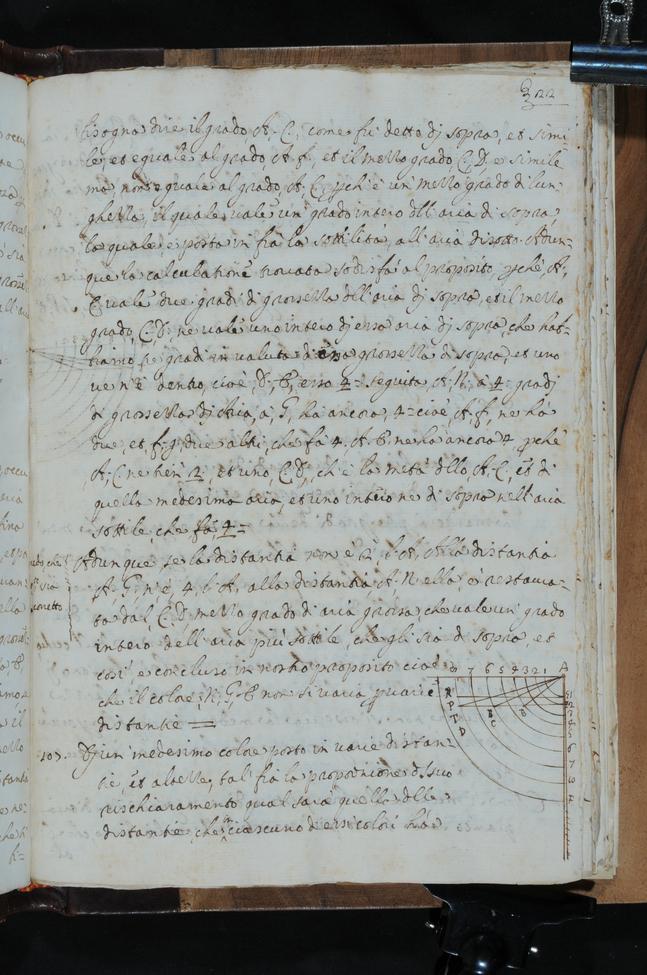 322
bisogna dire il grado, A. C, come fu' detto dj sopra, et simi-
le, et equale al grado, A. f, et il mezzo grado, C. D, e simile
ma non equale al grado, A. C, pche è un' mezzo grado di lun-
ghezza, il quale vale un' grado intero dll' aria di sopra,
la quale, e posta in fra la sottilità, all' aria disotto. Adun-
que la calculatione trovata sodisfá al proposito, pche, A,
C, vale due gradi di grossezza dll' aria dj sopra, et il mezzo
grado, C. D. ne vale uno intero dj essa aria dj sopra, che hab-
biamo gradi in valuta di essa grossezza di sopra, et uno
ve n'è dentro, cioè, D, B, esso 4= seguita A. N. à 4 gradj
di grossezza dj Aria, A, G, ha ancora, 4= cioè, A. f, ne ha
due, et f. g. due altri, che fà 4. A. B. ne ha ancora 4, pche
A, C ne tien 2, et uno, C. D, ch'è la metà dllo, A. C, et di
quella medesima aria, et uno intero ne di sopra nell' aria
sottile che fà 4=
Adunque se la distantia
A. G, n'è, 4, alla distantia, A. N ella, è restaura-
ta dal, C. D mezzo grado di aria grossa, che vale un' grado
intero dell' aria piu' sottile, che gli sta di sopra, et
cosi' e concluso in nostro proposito cioè
che il colore, N, G, B non si varia p varie
distantie =
107. Dj un' medesimo colore posto in varie distan-
tie, et altezze, tal' fia la proportione d suo
rischiaramento qual sarà quella dlle
distantie, che in ciascuno d essi colori hà
7 6 5 4 3 2 1 A